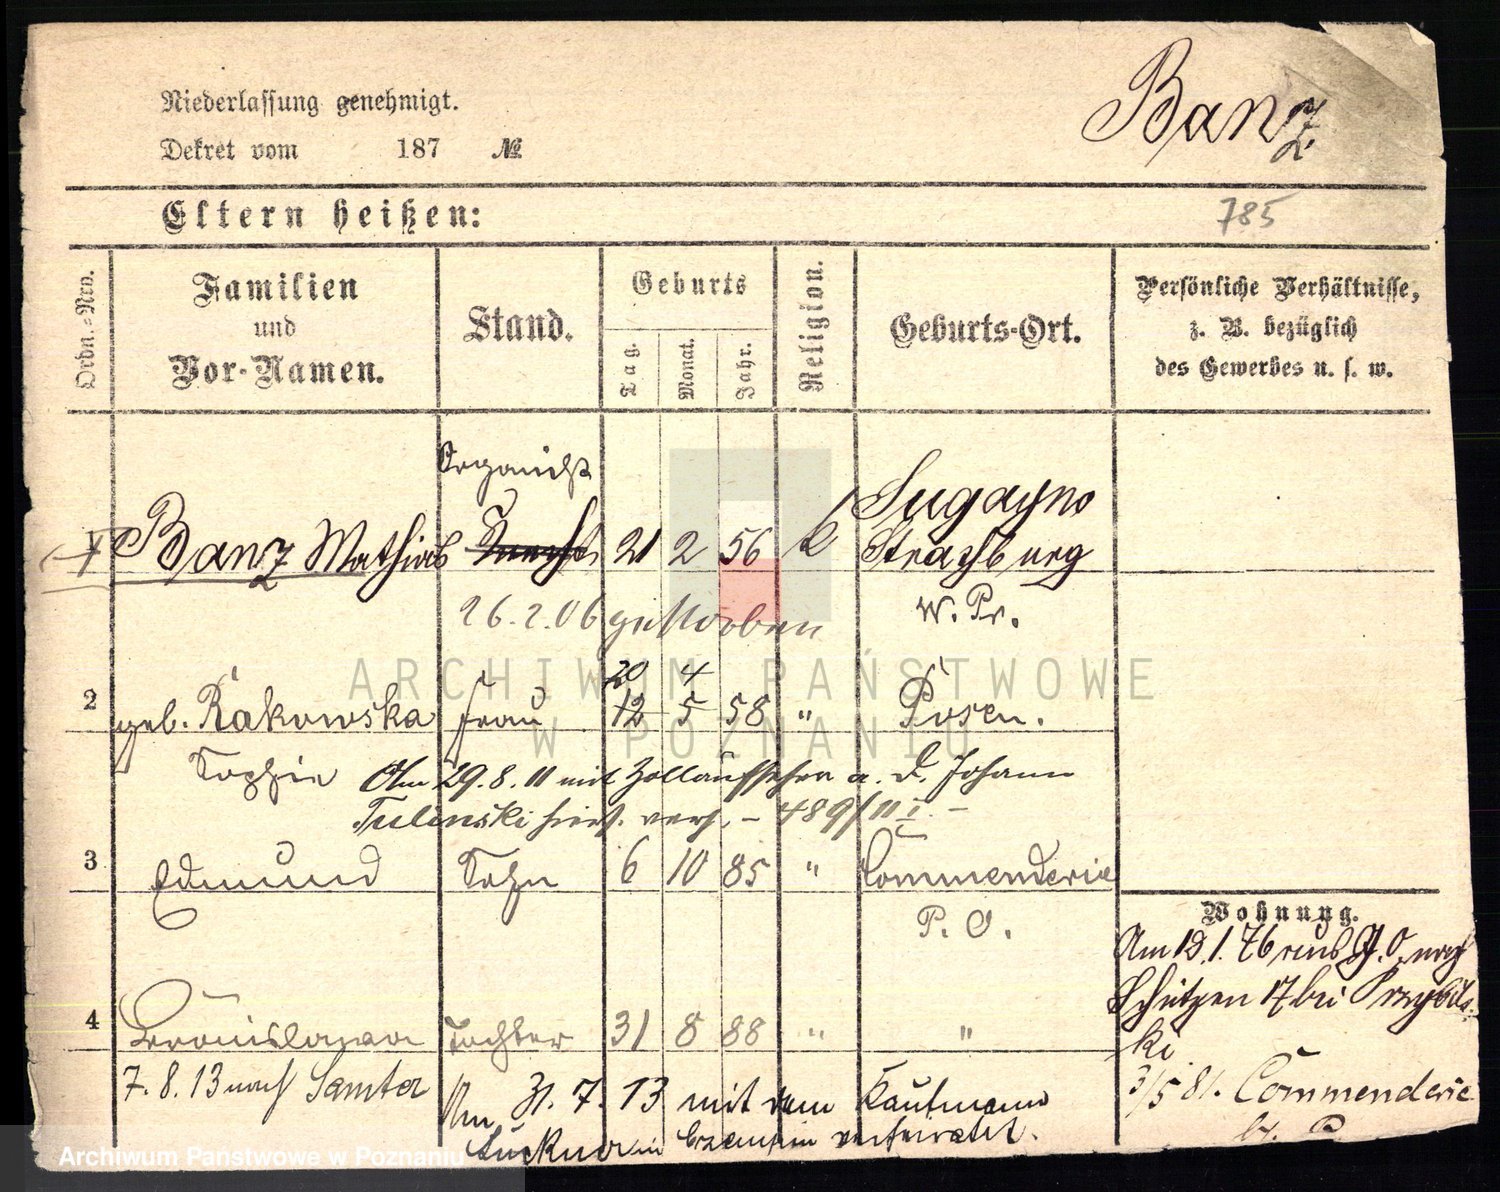 Niederlassung genehmigt.
Banz
Dekret vom 187 №
Eltern heißen:
785
Ordn.-Nro.
Familien und Vor-Namen.
Stand.
Geburts
Tag. Monat. Jahr.
Religion.
Geburts-Ort.
Persönliche Verhältnisse, z. B. bezüglich des Gewerbes u. s. w.
Organist
1 Banz Mathias Knecht 21 2 56 k Sugayno
Strasburg
26.2.06 gestorben W. Pr.
20 4
2 geb. Rakowska Frau 12 5 58 " Posen.
Sophie Am 29.8.11 mit Zollaufseher a. D. Johann
Tulinski hier verh. – 489/11 I. –
3 Edmund Sohn 6 10 85 " Commenderie
P. O.
4 Bronislawa Tochter 31 8 88 " "
7.8.13 nach Samter Am 31.7.13 mit dem Kaufmann
in verheiratet.
Wohnung.
Am 19.1.76 nach
Schützen 17 bei Przybils-
ki
3/5 81. Commenderie
ARCHIWUM PAŃSTWOWE
W POZNANIU
Archiwum Państwowe w Poznaniu